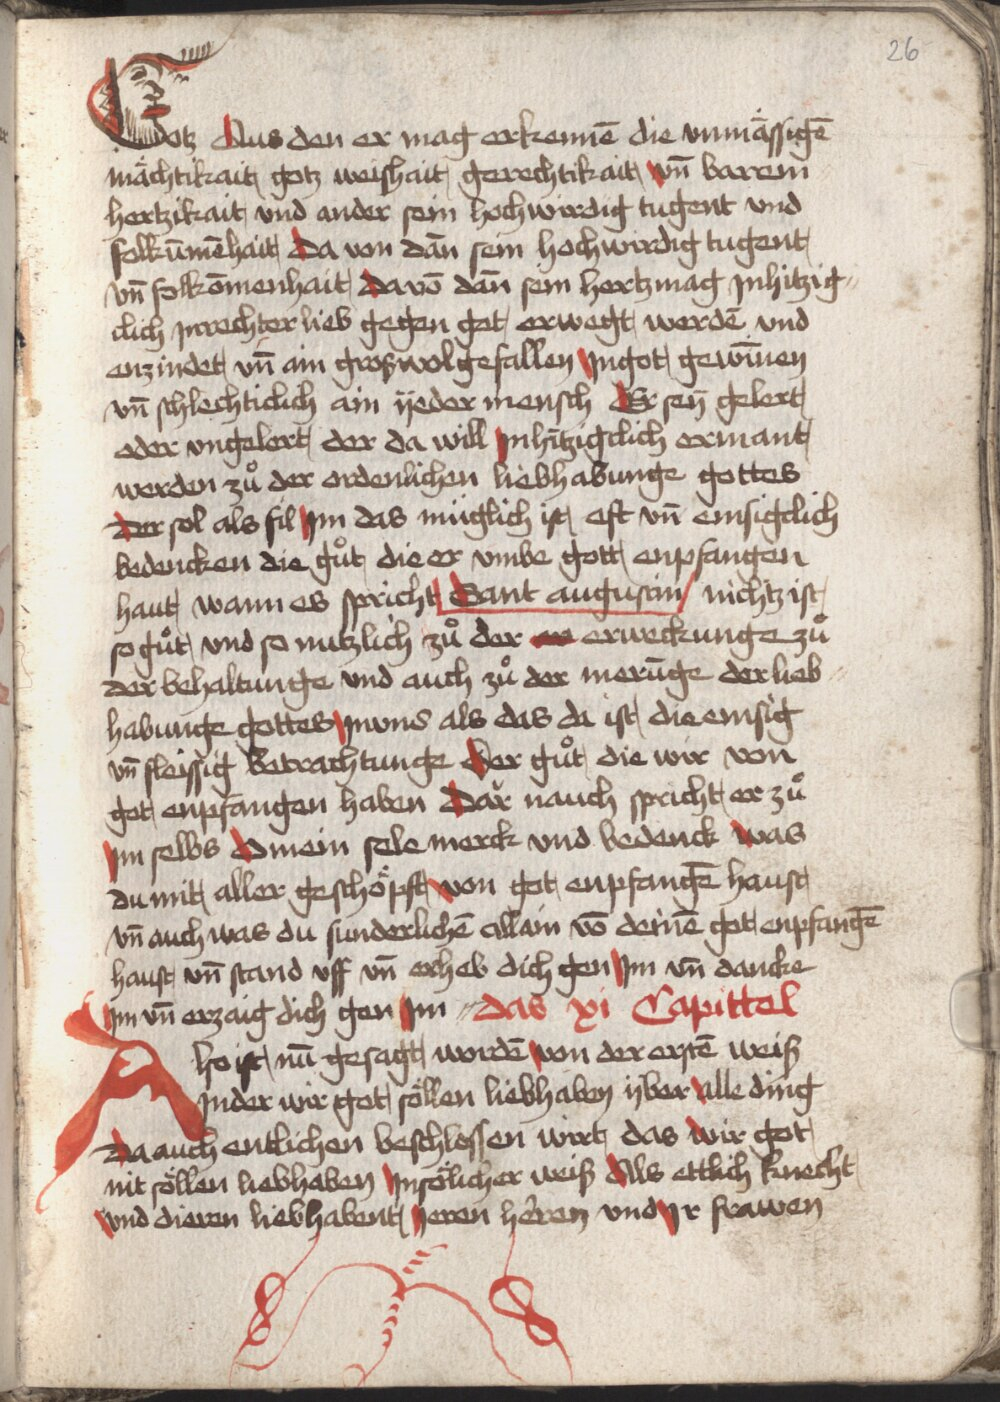 26
Gotz Aus den er mag erkennē die vnmässigē
mächtikait gotz weishait gerechtikait vn̄ barem
hertzikait vnd ander sein hochwirdig tugent vnd
folkūmēhait Da von dān sein hochwirdig tugent
vn̄ folkōmenhait Da vō dān sein hertz mag Inhitzig⸗
clich In rechter lieb gegen got erwegt werdē vnd
enzindet vn̄ ain gross wolgefallen In got gewīnen
vn̄ schlechticlich ain ÿeder mensch Er seÿ gelert
oder vngelert der da will Inhitzigclich ermant
werden zuͦ der ordenlichen liebhabunge gottes
Der sol als fil Im das müglich ist oft vn̄ emsigclich
bedencken die guͦt die er vmbe gott enpfangen
haut wann es spricht Sant augustin nichtz ist
so guͦt vnd so nutzlich zuͦ der erweckunge zuͦ
der behaltunge vnd auch zuͦ der merūge der lieb⸗
habunge gottes In vns als das da ist die emsig
vn̄ fleissig betrachtunge Der guͦt die wir von
got enpfangen haben Dar nauch spricht er zuͦ
Im selbs O mein sele merck vnd bedenck was
du mit aller geschöpft von got enpfangē haust
vn̄ auch was du sunderlichē allain vō deinē got enpfangē
haust vn̄ stand vff vn̄ erheb dich gen Im vn̄ dancke
Im vn̄ erzaig dich gen Im das xi Capittel
Also ist nū gesagt wordē von der erstē weiß
In der wir got söllen liebhaben ÿber alle ding
Da auch entlichen beschlossen wirt das wir got
nit söllen liebhaben In sölicher weiß Als ettlich knecht
vnd dieren liebhabent Ieren herren vnd Ir frawen